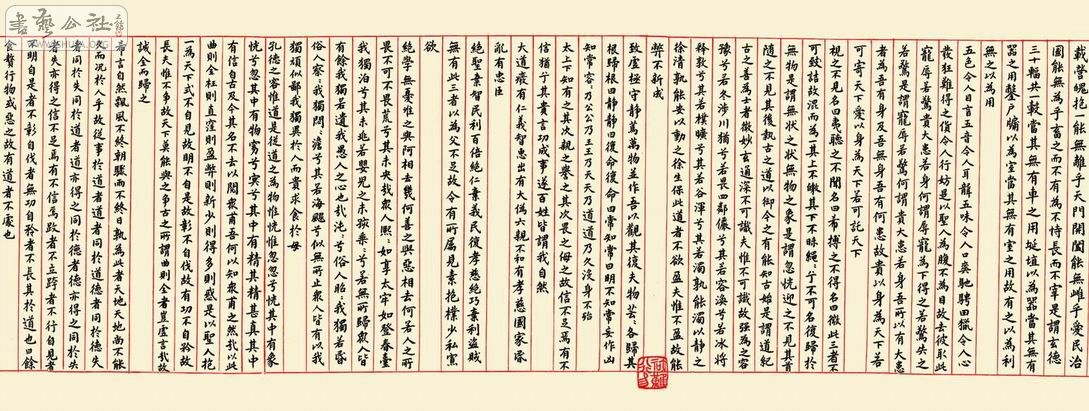 書藝公社
載營魄抱一能無離乎天門開闔能無雌乎愛民治
國能無為乎畜之而不有為不恃長而不宰是謂玄德
三十輻共一轂當其無有車之用埏埴以為器當其無有
器之用鑿戶牖以為室當其無有室之用故有之以為利
無之以為用
五色令人目盲五音令人耳聾五味令人口爽馳騁田獵令人心
發狂難得之貨令人行妨是以聖人為腹不為目故去彼取此
寵辱若驚貴大患若身何謂寵辱寵為下得之若驚失之
若驚是謂寵辱若驚何謂貴大患若身吾所以有大患
者為吾有身及吾無身吾有何患故貴以身為天下若
可寄天下愛以身為天下若可託天下
視之不見名曰夷聽之不聞名曰希搏之不得名曰微此三者不
可致詰故混而為一其上不皦其下不昧繩〻兮不可名復歸於
無物是謂無狀之狀無物之象是謂忽恍迎之不見其首
隨之不見其後執古之道以御今之有能知古始是謂道紀
古之善為士者微妙玄通深不可識夫惟不可識故強為之容
豫兮若冬涉川猶兮若畏四鄰儼兮其若客渙兮若冰將
釋敦兮其若樸曠兮其若谷渾兮其若濁孰能濁以靜之
徐清孰能安以動之徐生保此道者不欲盈夫惟不盈故能
弊不新成
致虛極守靜篤萬物並作吾以觀其復夫物芸〻各歸其
根歸根曰靜靜曰復命復命曰常知常曰明不知常妄作凶
知常容乃公公乃王王乃天天乃道道乃久沒身不殆
太上下知有之其次親之譽之其次畏之侮之故信不足焉有不
信猶兮其貴言功成事遂百姓皆謂我自然
大道廢有仁義智惠出有大偽六親不和有孝慈國家昏
亂有忠臣
絕聖棄智民利百倍絕仁棄義民復孝慈絕巧棄利盜賊
無有此三者以為文不足故令有所屬見素抱樸少私寡
欲
絕學無憂唯之與阿相去幾何善之與惡相去何若人之所
畏不可不畏荒兮其未央哉眾人熙〻如享太牢如登春臺
我獨泊兮其未兆若嬰兒之未孩乘〻兮若無所歸眾人皆
有餘我獨若遺我愚人之心也哉沌〻兮俗人昭〻我獨若昏
俗人察〻我獨悶〻澹兮其若海飂兮似無所止眾人皆有以我
獨頑似鄙我獨異於人而貴求食於母
孔德之容惟道是從道之為物惟恍惟忽忽兮恍其中有象
恍兮忽其中有物窈兮冥兮其中有精其精甚真其中
有信自古及今其名不去以閱眾甫吾何以知眾甫之然哉以此
曲則全枉則直窪則盈弊則新少則得多則惑是以聖人抱
一為天下式不自見故明不自是故彰不自伐故有功不自矜故
長夫惟不爭故天下莫能與之爭古之所謂曲則全者豈虛言哉故
誠全而歸之
希言自然飄風不終朝驟雨不終日孰為此者天地天地尚不能
久而況於人乎故從事於道者道者同於道德者同於德失
者同於失同於道者道亦得之同於德者德亦得之同於失
者失亦得之信不足焉有不信焉跂者不立跨者不行自見者
不明自是者不彰自伐者無功自矜者不長其於道也曰餘
食贅行物或惡之故有道者不處也